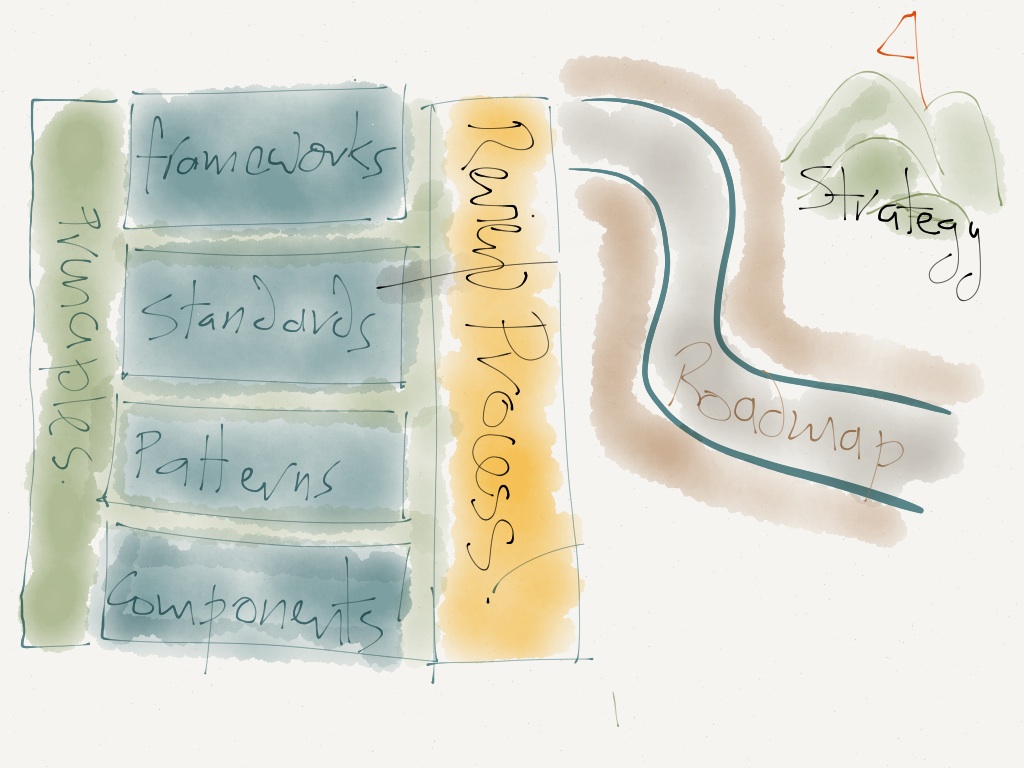 Principles.
frameworks
Standards
Patterns
Components
Review Process.
Roadmap
Strategy